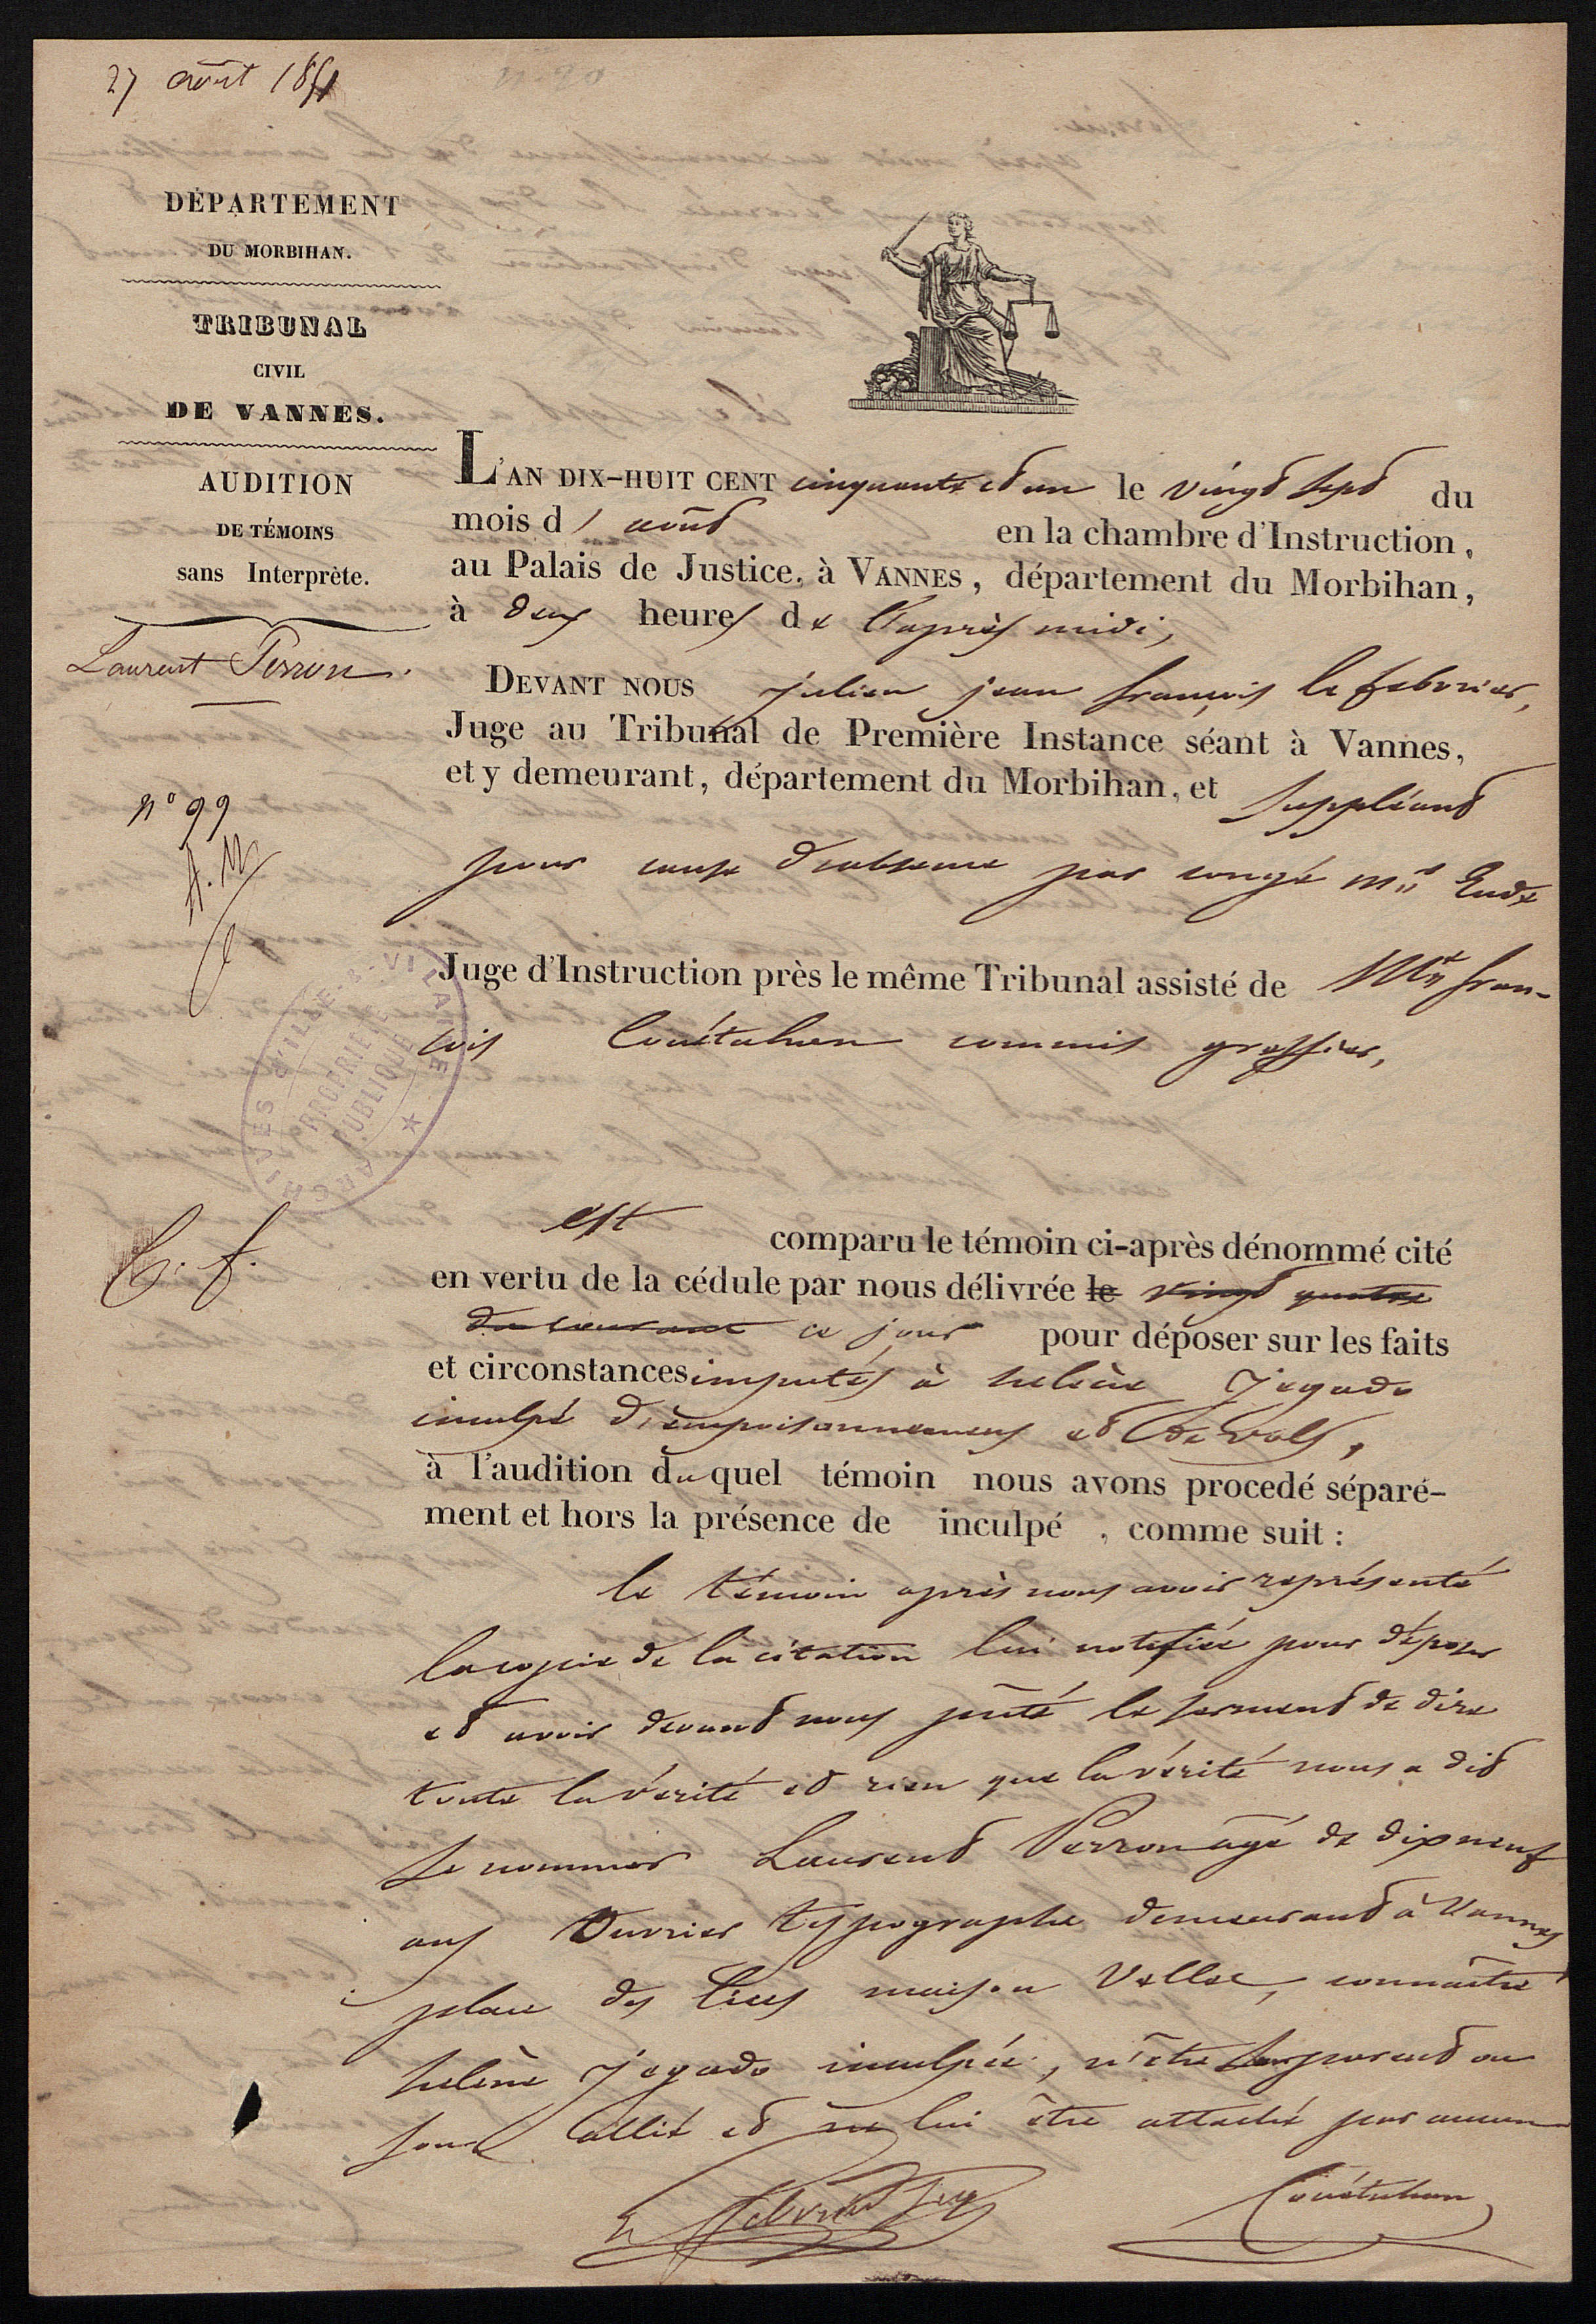 27 août 1851
DÉPARTEMENT
DU MORBIHAN.
TRIBUNAL
CIVIL
DE VANNES.
AUDITION
DE TÉMOINS
sans Interprète.
Laurent Perron.
n° 99
C. f.
ARCHIVES D'ILLE-&-VILAINE
PROPRIÉTÉ
PUBLIQUE
L'AN DIX-HUIT CENT cinquante et un le vingt sept du
mois d' août en la chambre d'Instruction,
au Palais de Justice, à VANNES, département du Morbihan,
à deux heures de l'après midi,
DEVANT NOUS julien jean françois le febvrier,
Juge au Tribunal de Première Instance séant à Vannes,
et y demeurant, département du Morbihan, et suppléant
pour cause d'absence par congé Mr Eude
Juge d'Instruction près le même Tribunal assisté de Mtre fran-
cois Couétuhan commis greffier,
est comparu le témoin ci-après dénommé cité
en vertu de la cédule par nous délivrée le vingt quatre
du courant ce jour pour déposer sur les faits
et circonstances imputés à heleine Jegado
inculpé d'empoisonnements et de vols,
à l'audition duquel témoin nous avons procedé séparé-
ment et hors la présence de inculpé, comme suit :
le témoin après nous avoir représenté
la copie de la citation lui notifiée pour déposer
et avoir devant nous prêté le serment de dire
toute la vérité et rien que la vérité nous a dit
se nommer Laurent Perron âgé de dix neuf
ans Ouvrier typographe demeurant à Vannes
place des lices maison Vallee, connaître
helène Jegado inculpée, n'être son parent ou
son allié et ne lui être attaché par aucun
Le Febvrier Juge
Couétuhan